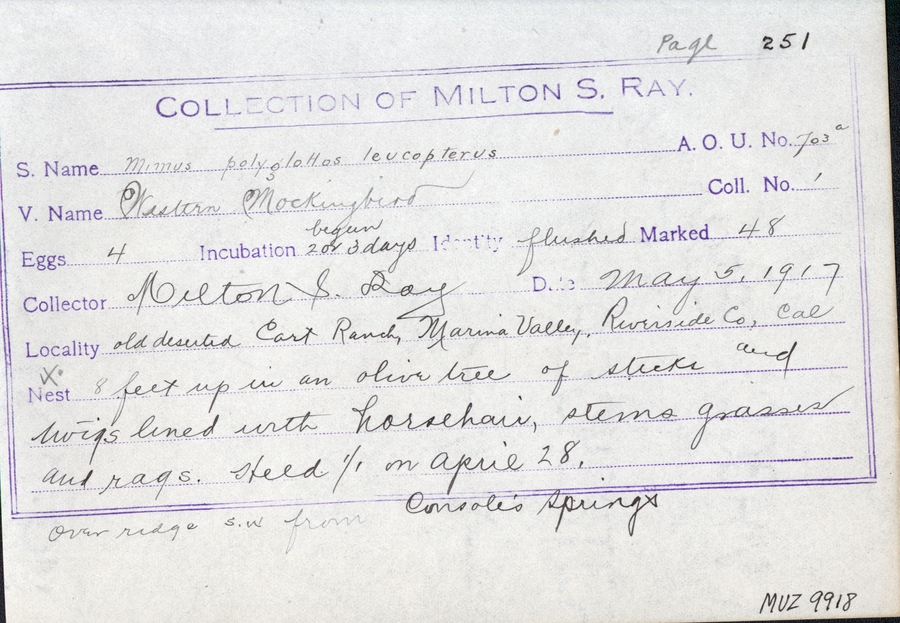 Page 251
COLLECTION OF MILTON S. RAY.
S. Name Mimus polyglottos leucopterus A. O. U. No. 703a
V. Name Western Mockingbird Coll. No. 1
Eggs 4 Incubation begun 2 or 3 days Identity flushed Marked 48
Collector Milton S. Ray Date May 5, 1917
Locality old deserted Cart Ranch, Marina Valley, Riverside Co, Cal
x.
Nest 8 feet up in an olive tree of sticks and
twigs lined with horsehair, stems grasses
and rags. Held 1/1 on April 28.
Over ridge s.w from Console's Springs
MUZ 9918